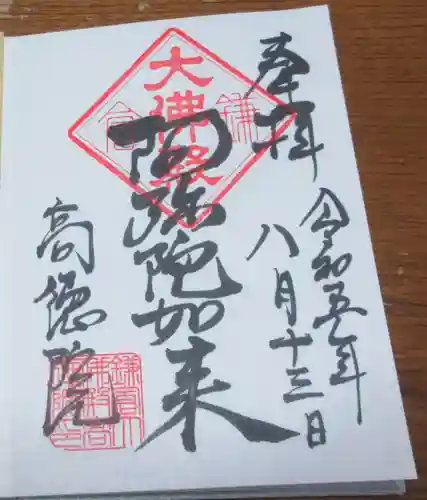 奉拝
令和五年
八月十三日
鎌
大佛殿
倉
阿弥陀如来
高徳院